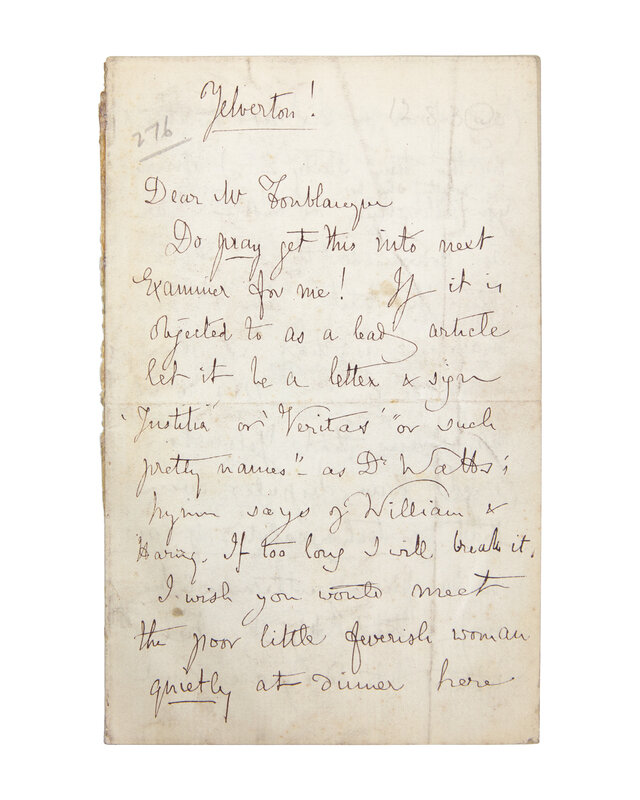 Yelverton!
276
Dear Mr Fonblanque
Do pray get this into next
Examiner for me! If it is
objected to as a lead article
let it be a letter & sign
'Justitia' or 'Veritas' "or such
pretty names" - as Dr Watts's
hymn says of William &
If too long I will break it.
I wish you would meet
the poor little feverish woman
quietly at dinner here